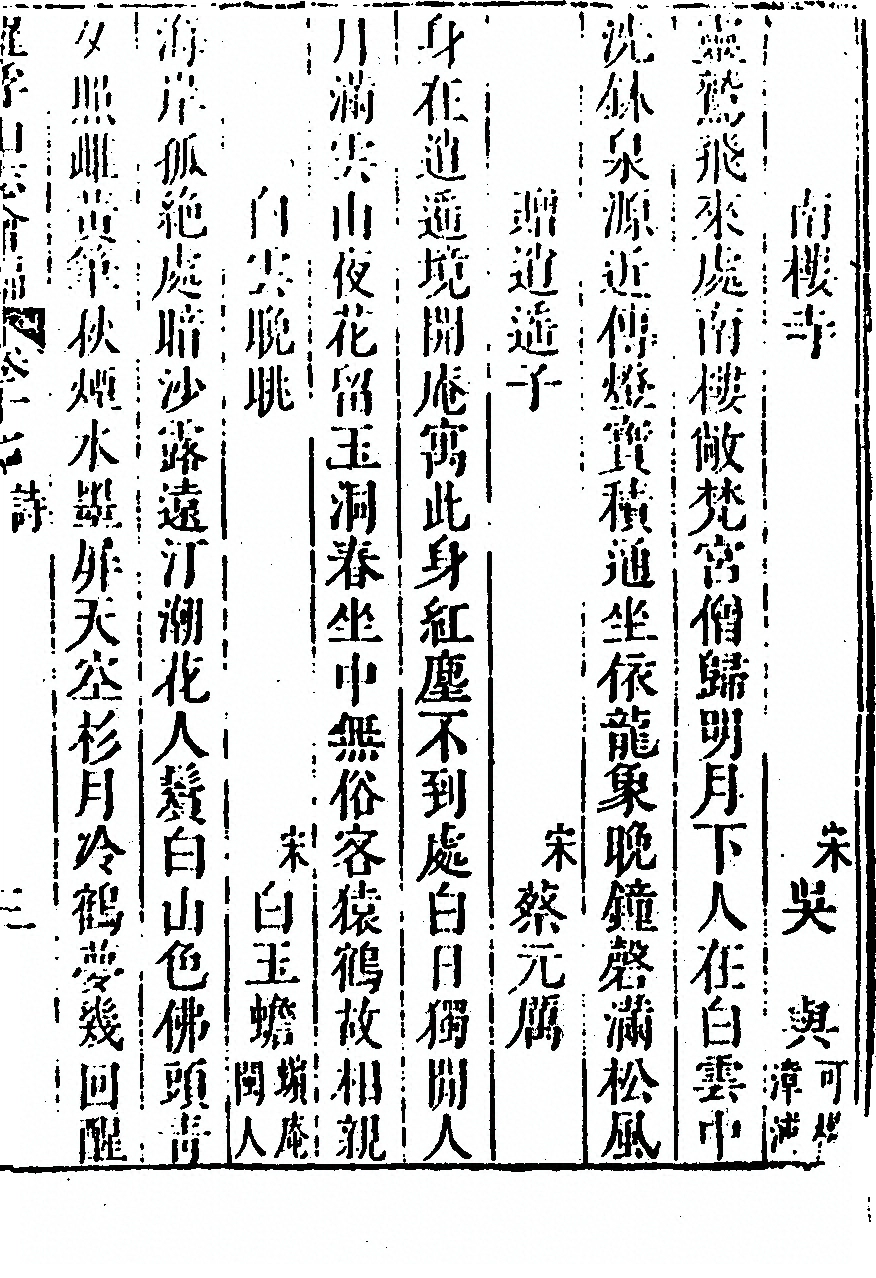 南樓寺
宋吳與可權漳浦
靈鷲飛來處南樓敞梵宮僧歸明月下人在白雲中
洗鉢泉源近傳燈寶積通坐依龍象晚鐘磬滿松風
贈逍遥子
宋蔡元厲
身在逍遥境開庵寓此身紅塵不到處白日獨閒人
月滿雲山夜花留玉洞春坐中無俗客猿鶴故相親
白雲晚眺
宋白玉蟾蠙庵閩人
海岸孤絶處暗沙露遠汀潮花人鬢白山色佛頭青
夕照雌黄筆秋煙水墨屏天空杉月冷鶴夢幾回醒
羅浮山志會編 卷十 詩 三